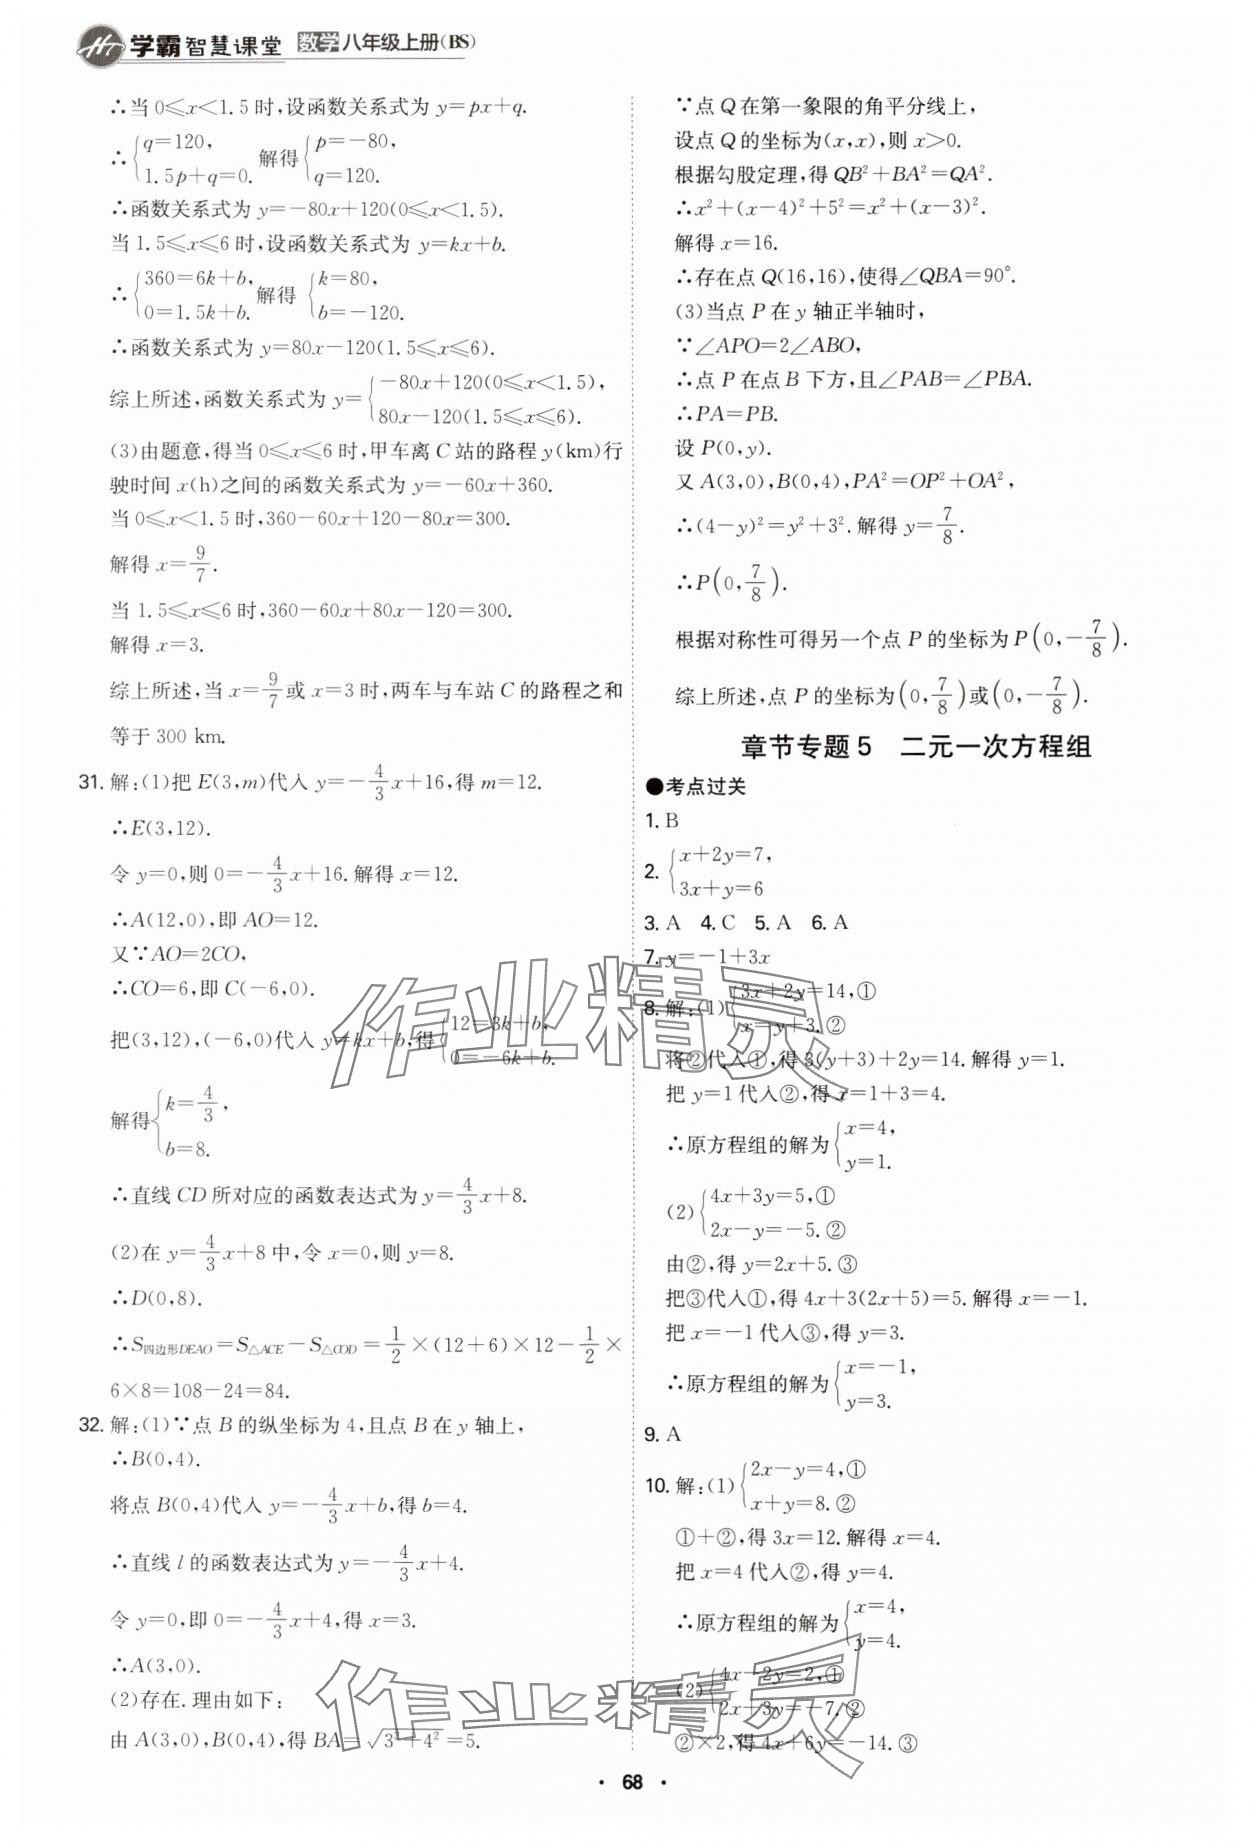 学霸智慧课堂 数学八年级上册(BS)
∴当 0≤x<1.5 时,设函数关系式为 y=px+q.
∴{q=120, 1.5p+q=0. 解得{p=-80, q=120.
∴函数关系式为 y=-80x+120(0≤x<1.5).
当 1.5≤x≤6 时,设函数关系式为 y=kx+b.
∴{360=6k+b, 0=1.5k+b. 解得 {k=80, b=-120.
∴函数关系式为 y=80x-120(1.5≤x≤6).
综上所述,函数关系式为 y={-80x+120(0≤x<1.5), 80x-120(1.5≤x≤6).
(3)由题意,得当 0≤x≤6 时,甲车离 C 站的路程 y(km)行
驶时间 x(h)之间的函数关系式为 y=-60x+360.
当 0≤x<1.5 时,360-60x+120-80x=300.
解得 x=9/7.
当 1.5≤x≤6 时,360-60x+80x-120=300.
解得 x=3.
综上所述,当 x=9/7 或 x=3 时,两车与车站 C 的路程之和
等于 300 km.
31. 解:(1)把 E(3,m)代入 y=-4/3x+16,得 m=12.
∴E(3,12).
令 y=0,则 0=-4/3x+16. 解得 x=12.
∴A(12,0),即 AO=12.
又∵AO=2CO,
∴CO=6,即 C(-6,0).
把(3,12),(-6,0)代入 y=kx+b,得{12=3k+b, 0=-6k+b.
解得{k=4/3, b=8.
∴直线 CD 所对应的函数表达式为 y=4/3x+8.
(2)在 y=4/3x+8 中,令 x=0,则 y=8.
∴D(0,8).
∴S四边形DEAO=S△ACE-S△COD=1/2×(12+6)×12-1/2×
6×8=108-24=84.
32. 解:(1)∵点 B 的纵坐标为 4,且点 B 在 y 轴上,
∴B(0,4).
将点 B(0,4)代入 y=-4/3x+b,得 b=4.
∴直线 l 的函数表达式为 y=-4/3x+4.
令 y=0,即 0=-4/3x+4,得 x=3.
∴A(3,0).
(2)存在. 理由如下:
由 A(3,0),B(0,4),得 BA=√(3²+4²)=5.
∵点 Q 在第一象限的角平分线上,
设点 Q 的坐标为(x,x),则 x>0.
根据勾股定理,得 QB²+BA²=QA².
∴x²+(x-4)²+5²=x²+(x-3)².
解得 x=16.
∴存在点 Q(16,16),使得∠QBA=90°.
(3)当点 P 在 y 轴正半轴时,
∵∠APO=2∠ABO,
∴点 P 在点 B 下方,且∠PAB=∠PBA.
∴PA=PB.
设 P(0,y).
又 A(3,0),B(0,4),PA²=OP²+OA²,
∴(4-y)²=y²+3². 解得 y=7/8.
∴P(0,7/8).
根据对称性可得另一个点 P 的坐标为 P(0,-7/8).
综上所述,点 P 的坐标为(0,7/8)或(0,-7/8).
章节专题5 二元一次方程组
●考点过关
1. B
2. {x+2y=7, 3x+y=6
3. A 4. C 5. A 6. A
7. y=-1+3x
8. 解:(1){3x+2y=14,① x=y+3.②
将②代入①,得 3(y+3)+2y=14. 解得 y=1.
把 y=1 代入②,得 x=1+3=4.
∴原方程组的解为{x=4, y=1.
(2){4x+3y=5,① 2x-y=-5.②
由②,得 y=2x+5.③
把③代入①,得 4x+3(2x+5)=5. 解得 x=-1.
把 x=-1 代入③,得 y=3.
∴原方程组的解为{x=-1, y=3.
9. A
10. 解:(1){2x-y=4,① x+y=8.②
①+②,得 3x=12. 解得 x=4.
把 x=4 代入②,得 y=4.
∴原方程组的解为{x=4, y=4.
(2){4x-2y=2,① 2x+3y=-7.②
②×2,得 4x+6y=-14.③
作业精灵
作业精灵
· 68 ·